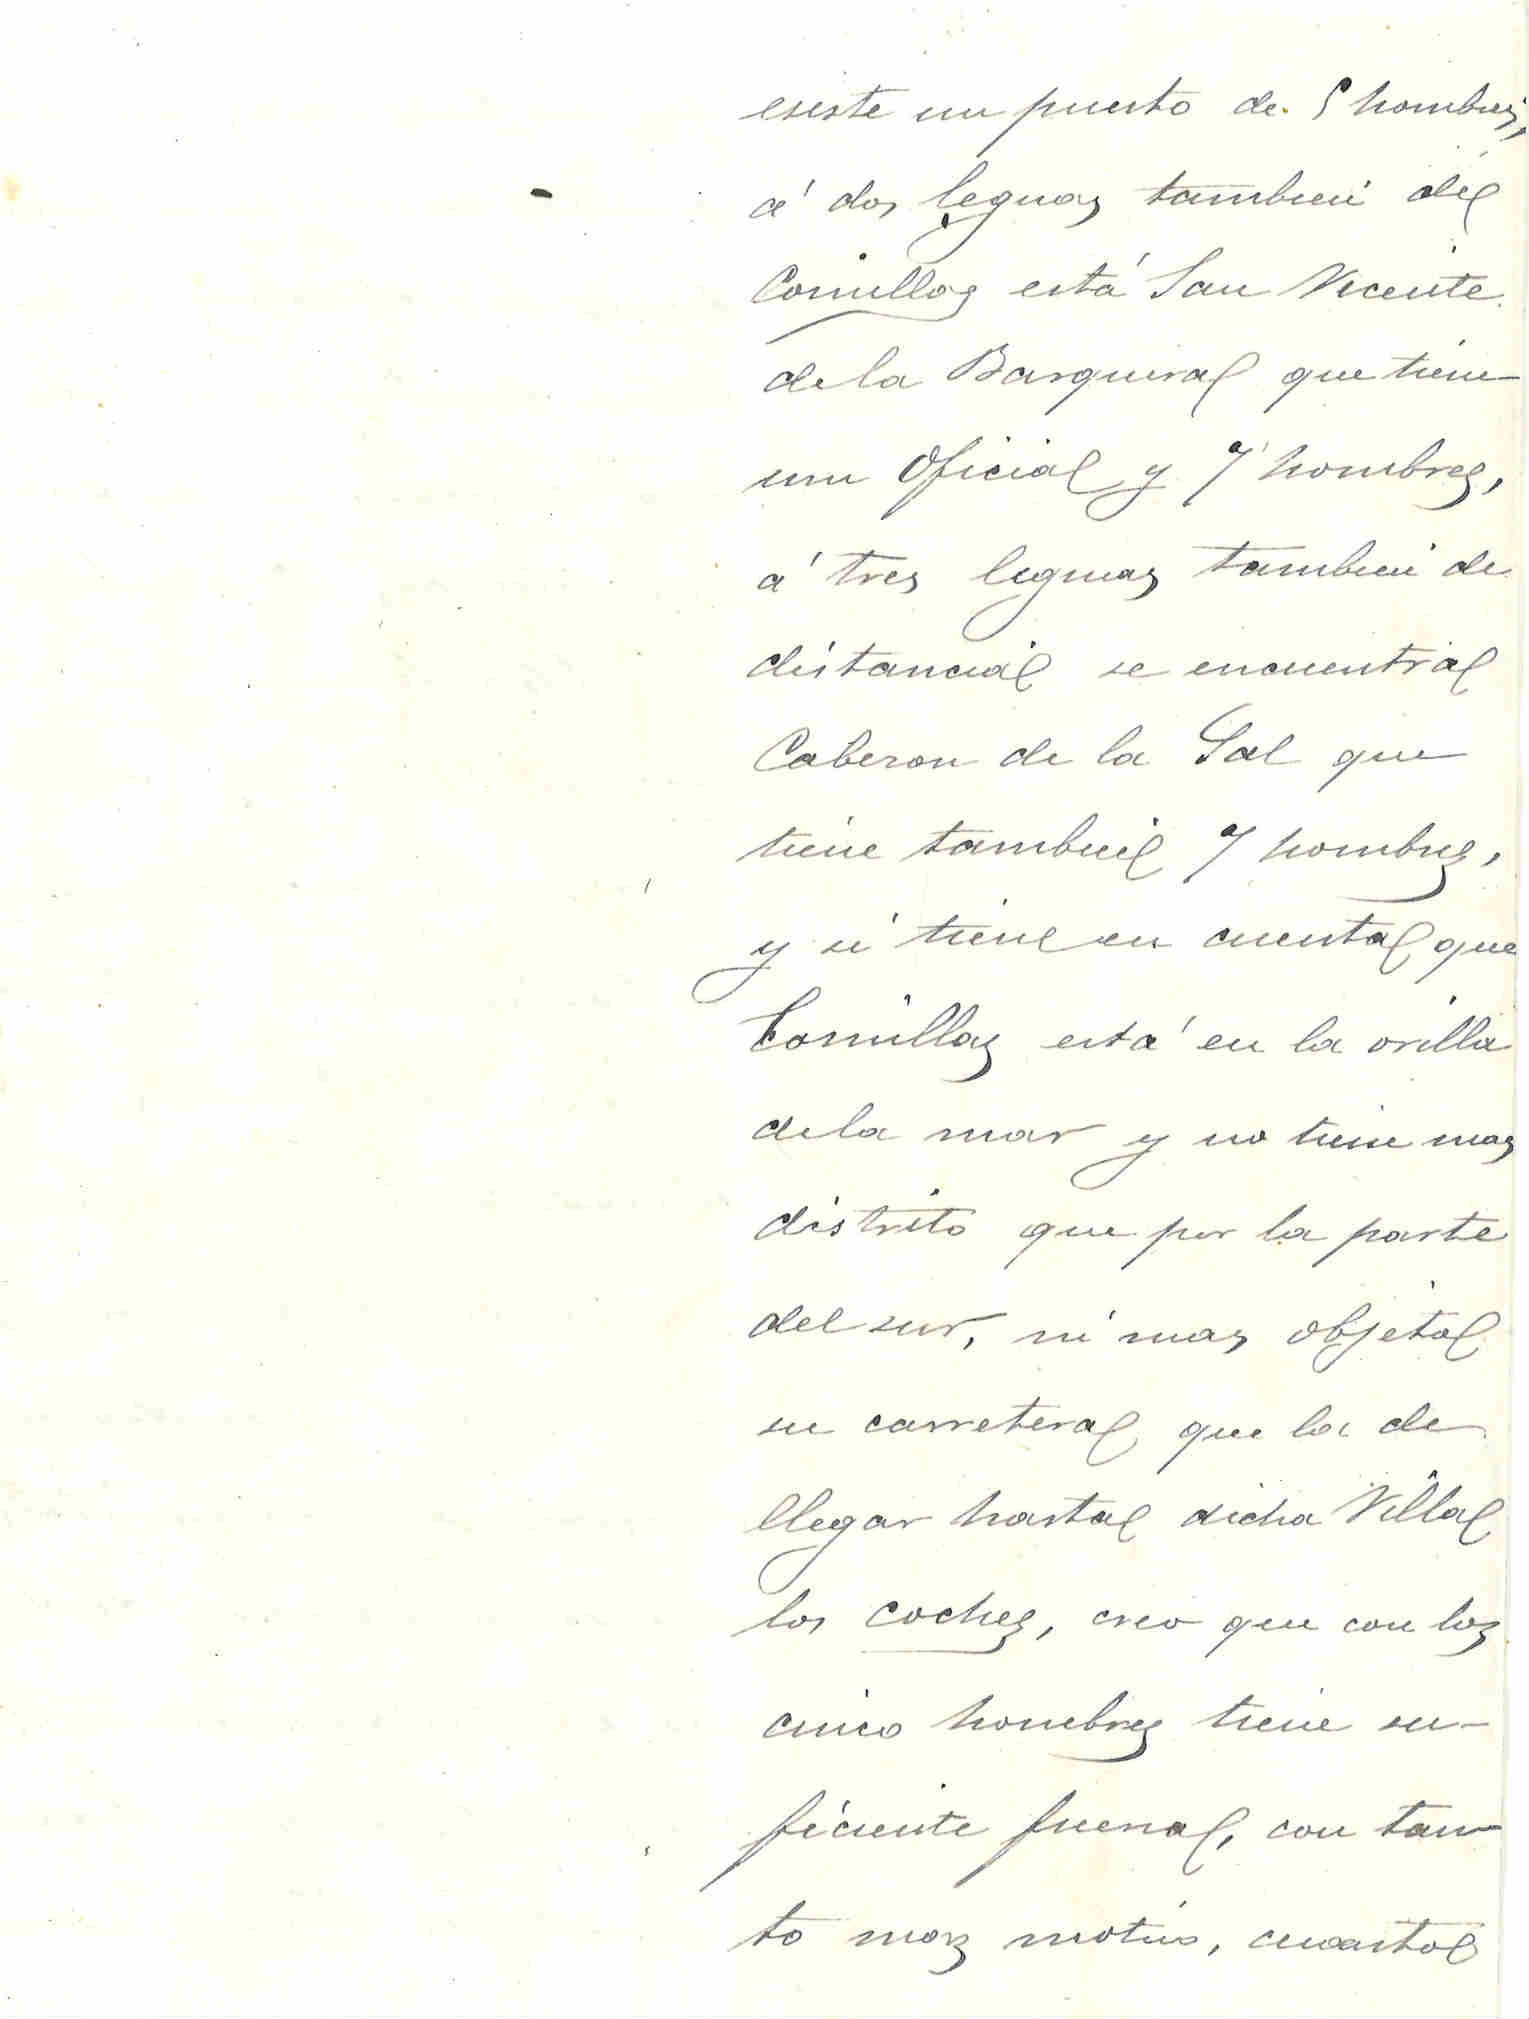 esiste un puesto de 5 hombres,
á dos leguas tambien de
Comillas está San Vicente
de la Barquera que tiene
un Oficial y 7 hombres,
á tres leguas tambien de
distancia se encuentra
Caberon de la Sal que
tiene tambien 7 hombres,
y si tiene en cuenta que
Comillas está en la orilla
de la mar y no tiene mas
distrito que por la parte
del sur, ni mas objeto
su carretera que la de
llegar hasta dicha Villa
los coches, creo que con los
cinco hombres tiene su-
ficiente fuerza, con tan
to mas motivo, cuanto